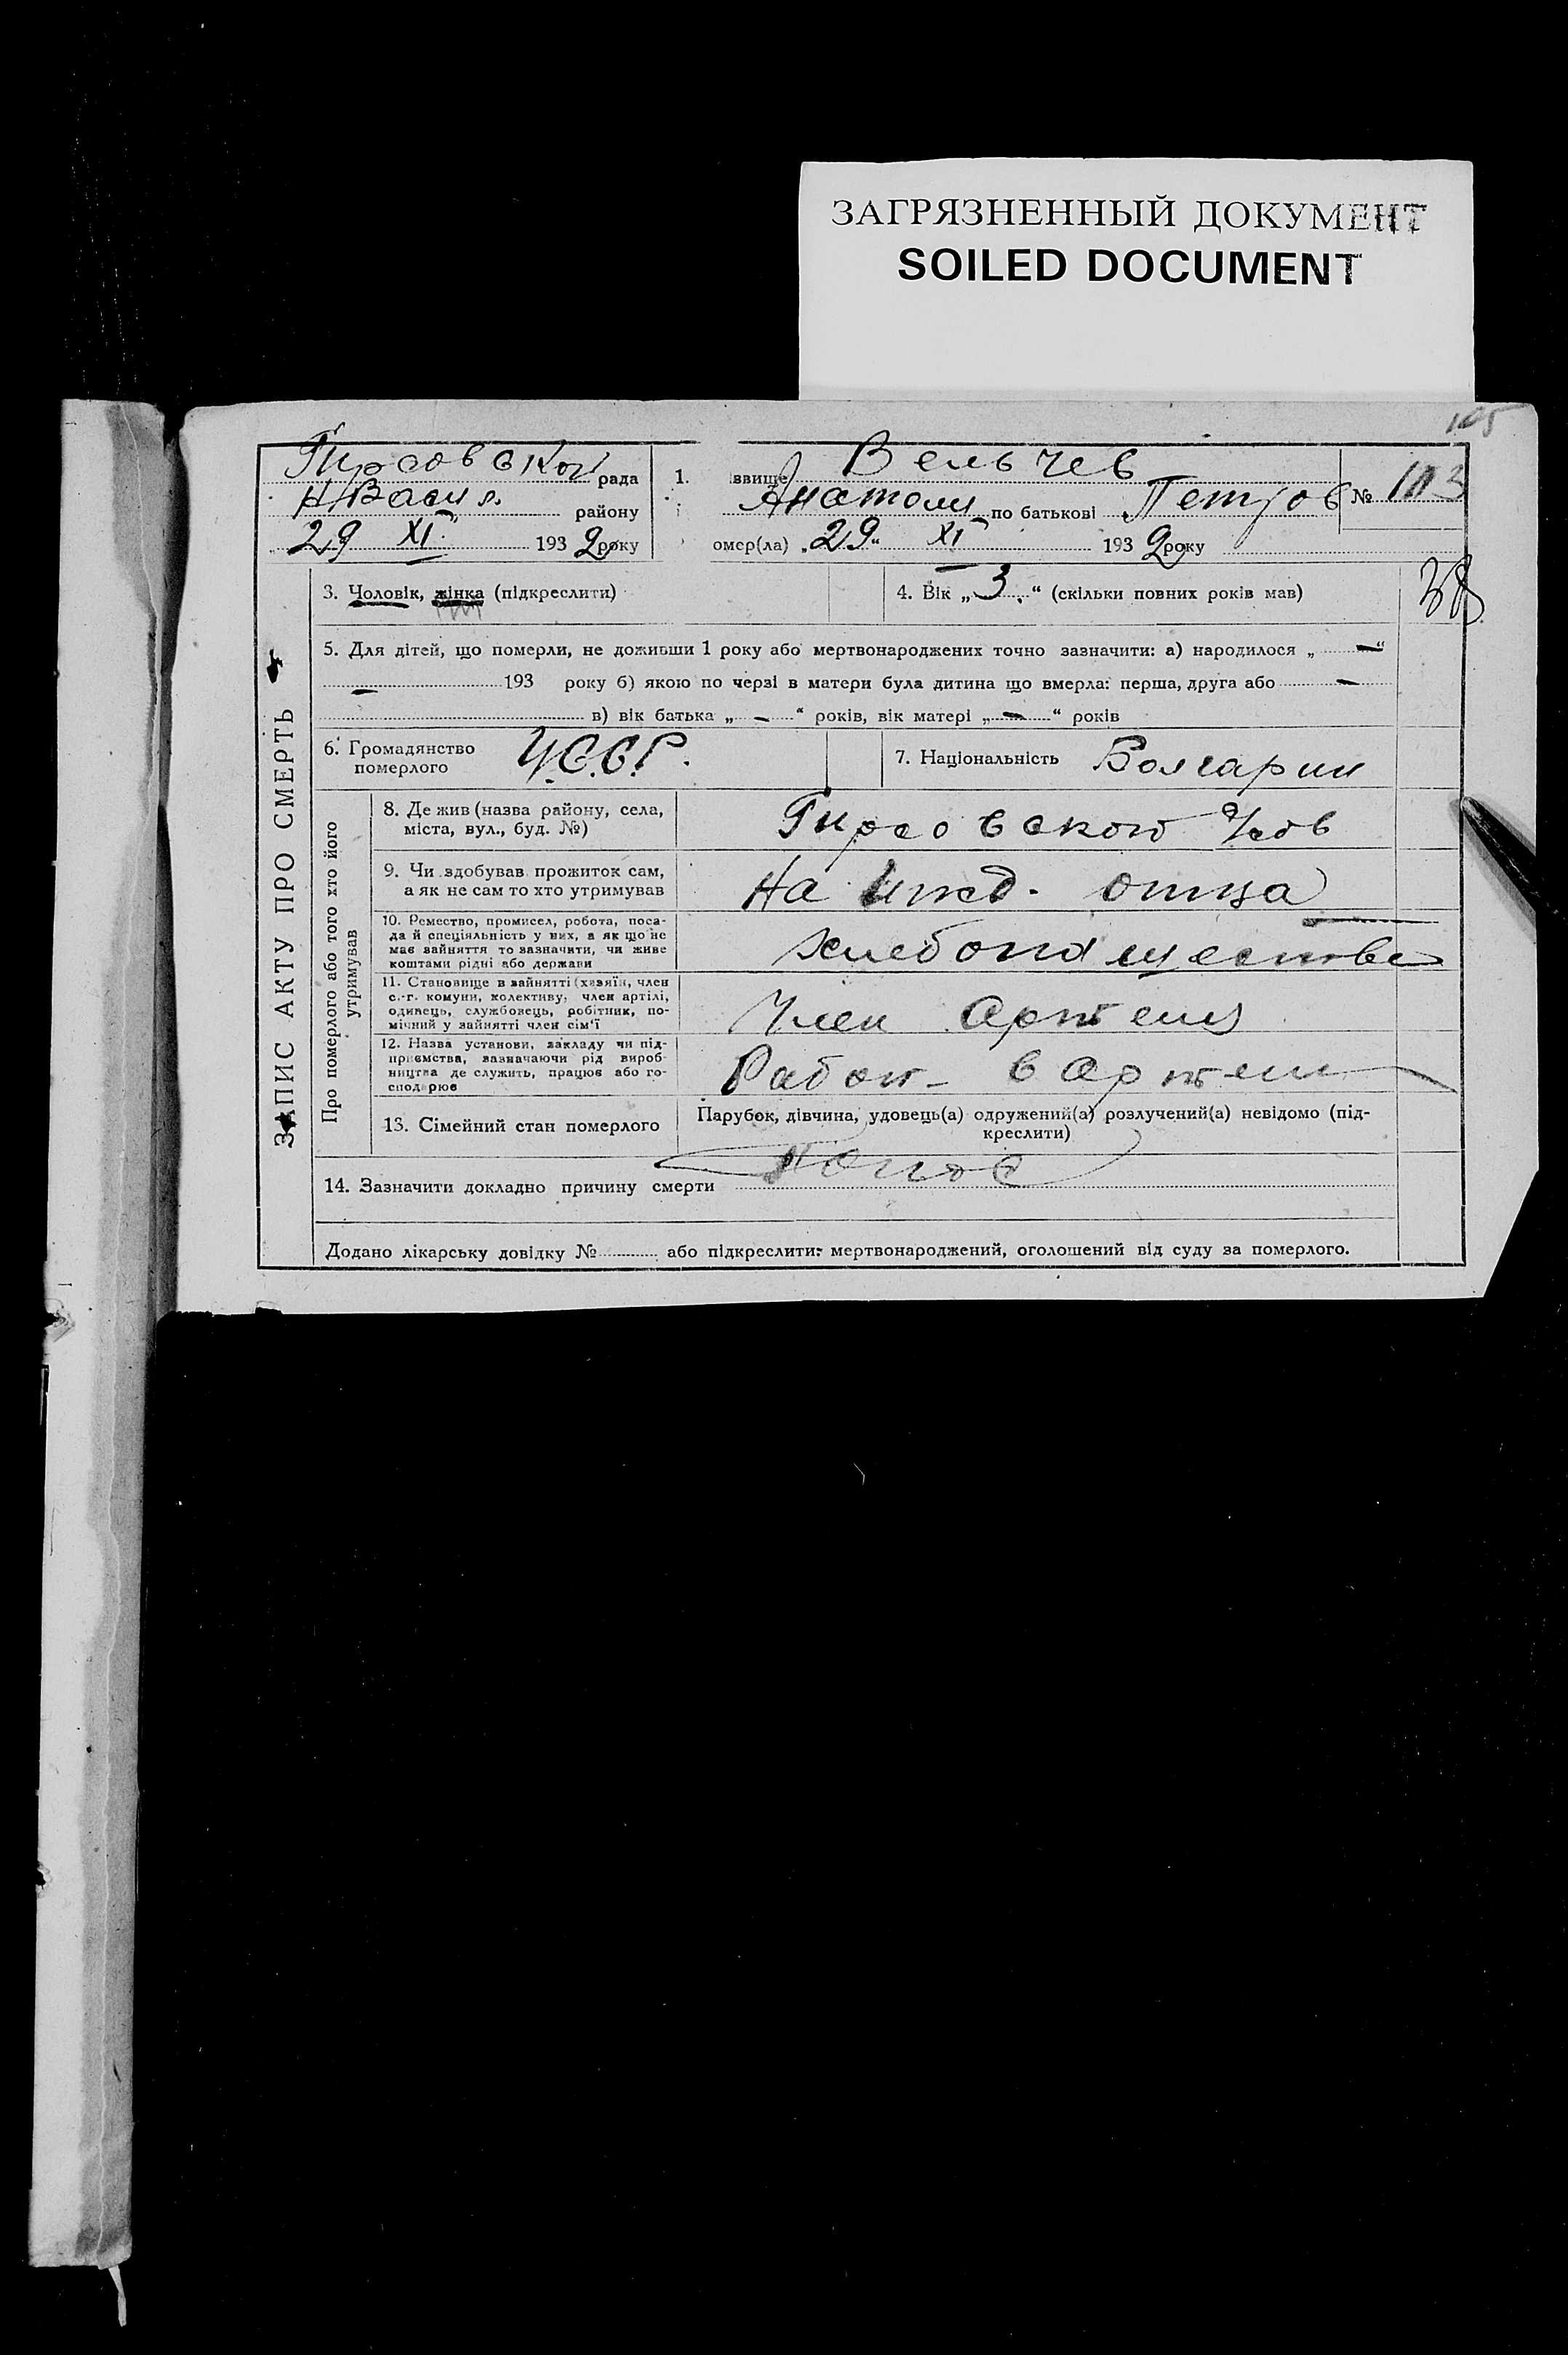 ЗАГРЯЗНЕННЫЙ ДОКУМЕНТ
SOILED DOCUMENT
105
Гирсовской рада
Н Васил. району
29 XI 1932 року
1. звище Вельчев
Анатоли по батькові Петров
№ 113
омер(ла) „29“ XI 1932 року
ЗАПИС АКТУ ПРО СМЕРТЬ
3. Чоловік, жінка (підкреслити)
4. Вік „3.“ (скільки повних років мав)
5. Для дітей, що померли, не доживши 1 року або мертвонароджених точно зазначити: а) народилося „ — “
— 193 року б) якою по черзі в матери була дитина що вмерла: перша, друга або —
в) вік батька „ — “ років, вік матері „ — “ років
6. Громадянство
померлого
У.С.С.Р.
7. Національність Болгарин
Про померлого або того хто його
утримував
8. Де жив (назва району, села,
міста, вул., буд. №)
Гирсовского
9. Чи здобував прожиток сам,
а як не сам то хто утримував
На ижд. отца
10. Ремество, промисел, робота, поса-
да й спеціяльність у них, а як що не
має зайняття то зазначити, чи живе
коштами рідні або держави
хлебопашество
11. Становище в зайнятті (хазяїн, член
с.-г. комуни, колективу, член артілі,
одинець, службовець, робітник, по-
мічний у зайнятті член сім'ї
Член Артели
12. Назва установи, закладу чи під-
приємства, зазначаючи рід вироб-
ництва де служить, працює або го-
сподарює
Работ- в Артели
13. Сімейний стан померлого
Парубок, дівчина, удовець(а) одружений(а) розлучений(а) невідомо (під-
креслити)
14. Зазначити докладно причину смерти понос
Додано лікарську довідку № або підкреслити: мертвонароджений, оголошений від суду за померлого.